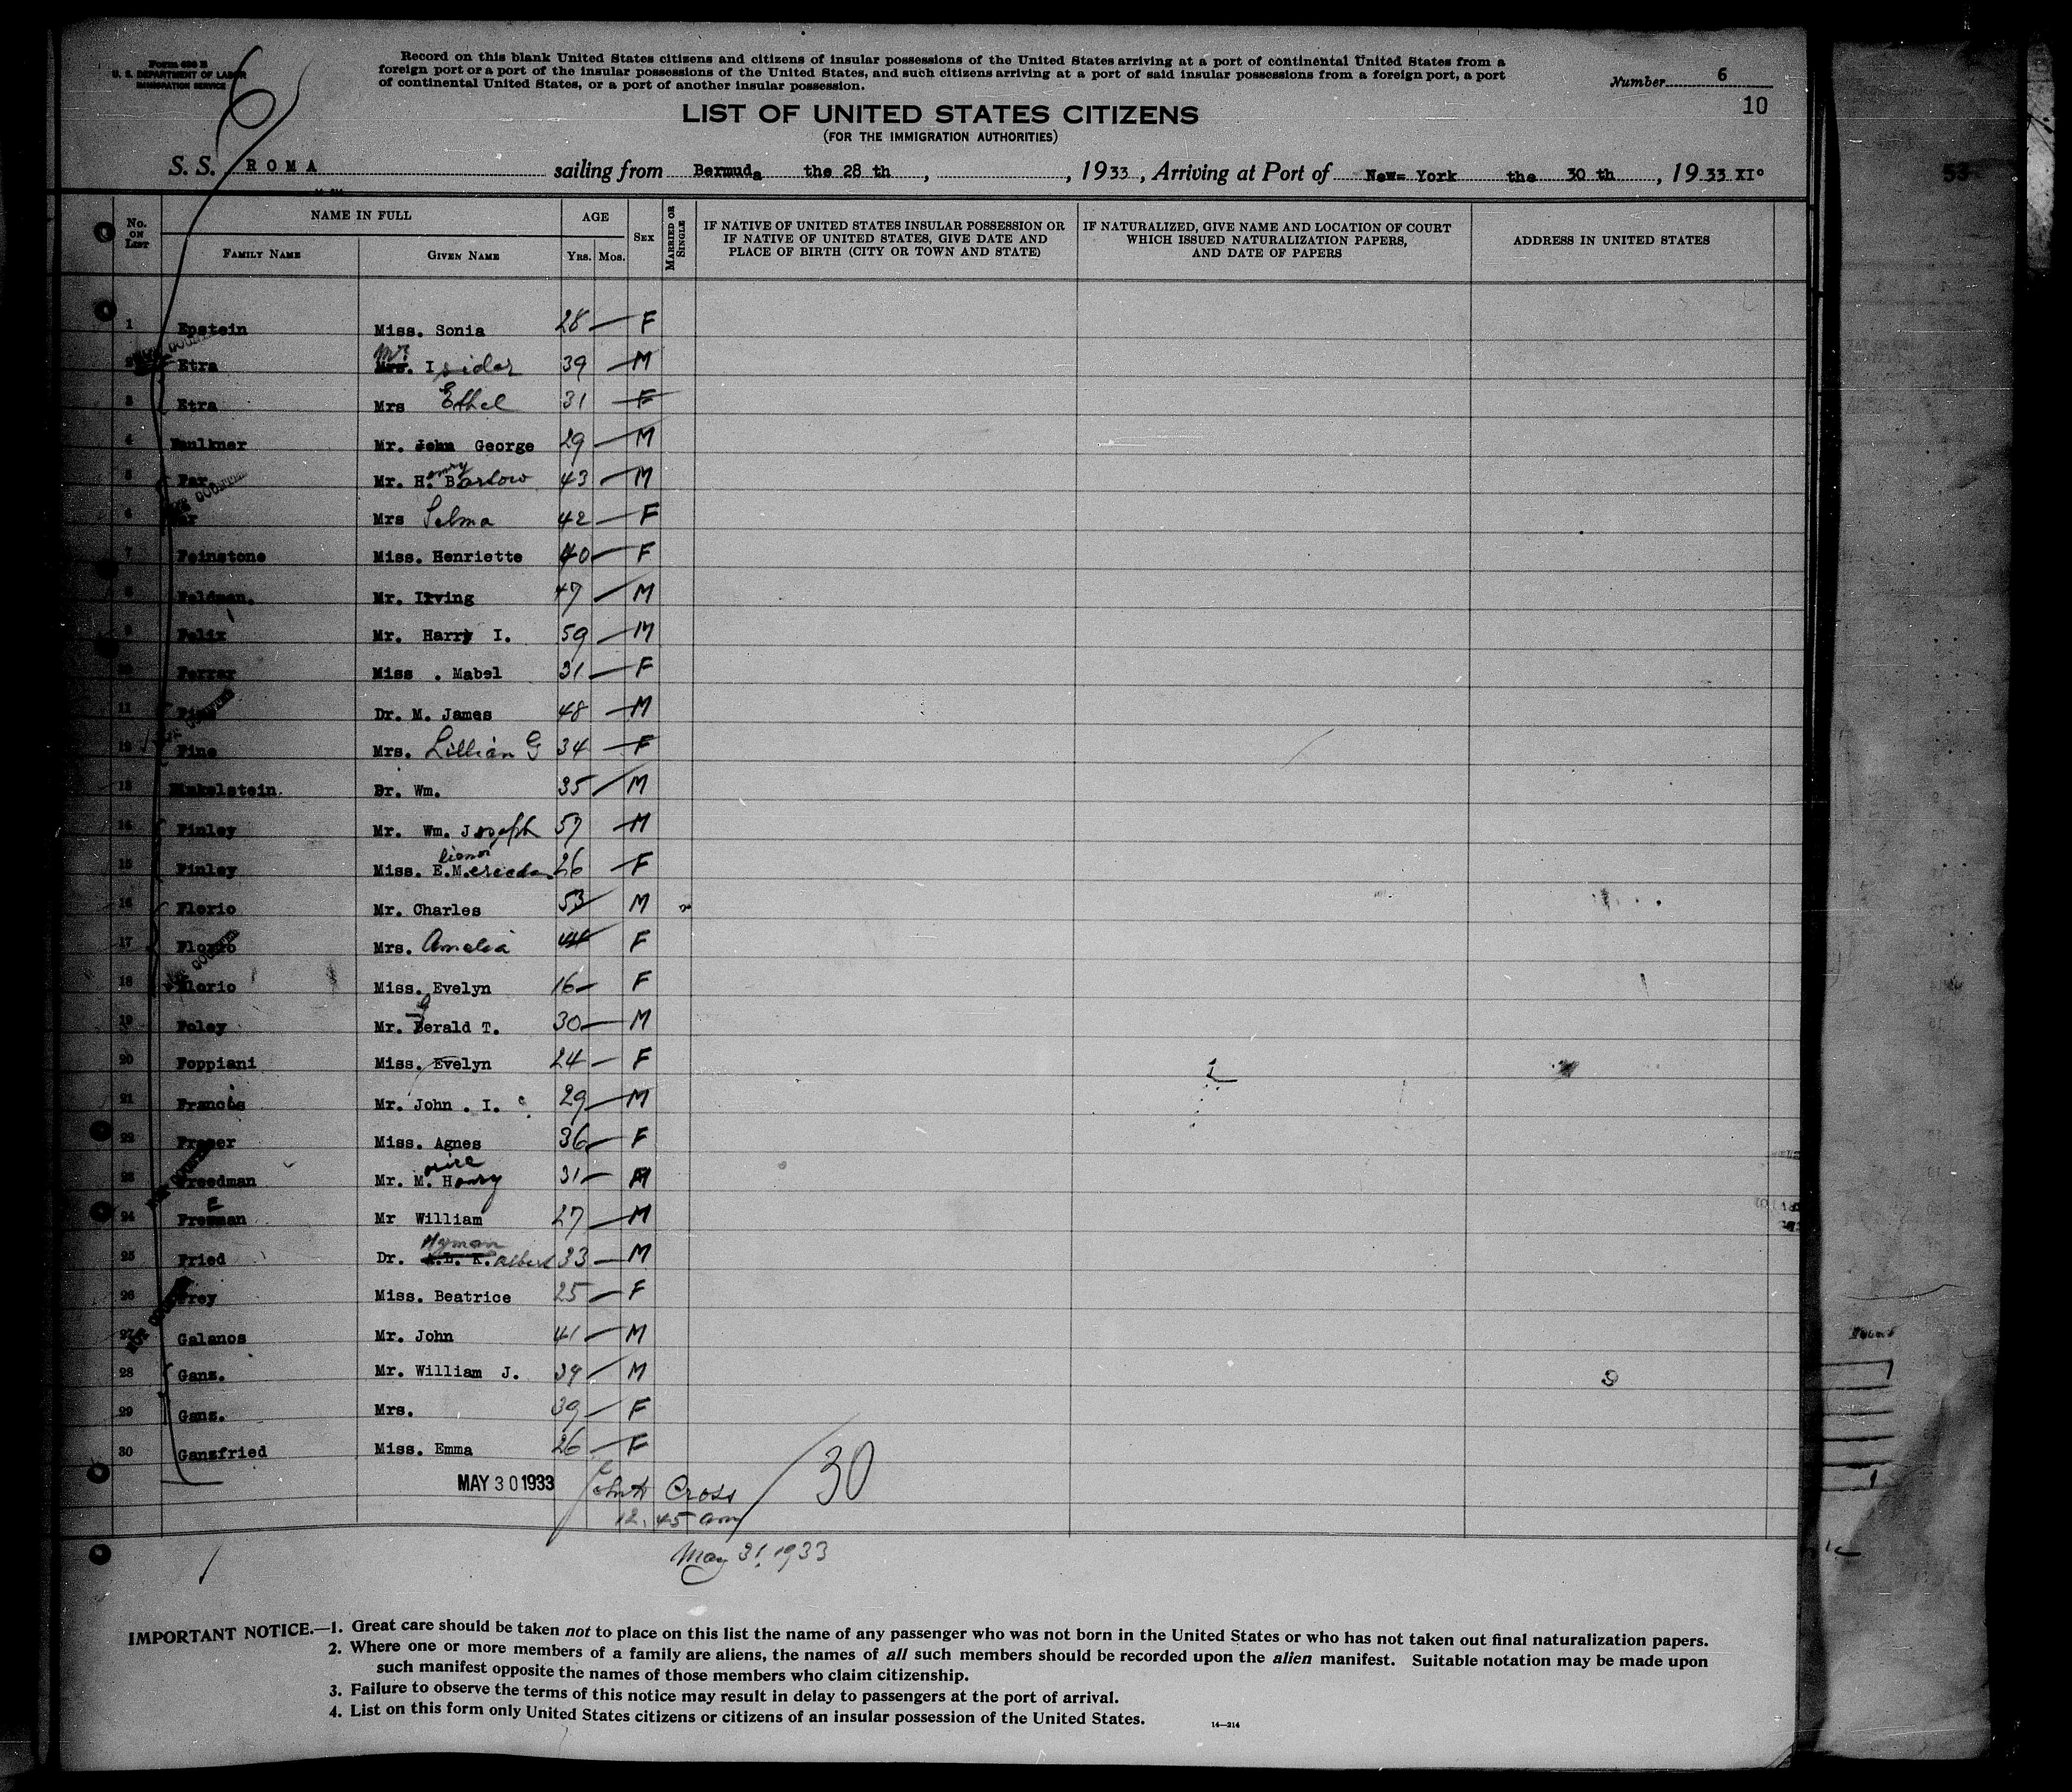 Form 696 B
U. S. DEPARTMENT OF LABOR
IMMIGRATION SERVICE
Record on this blank United States citizens and citizens of insular possessions of the United States arriving at a port of continental United States from a
foreign port or a port of the insular possessions of the United States, and such citizens arriving at a port of said insular possessions from a foreign port, a port
of continental United States, or a port of another insular possession.
Number 6
10
6
LIST OF UNITED STATES CITIZENS
(FOR THE IMMIGRATION AUTHORITIES)
S. S. ROMA sailing from Bermuda the 28 th , , 1933 , Arriving at Port of New= York the 30 th , 19 33 XIº
53
No. ON LIST NAME IN FULL AGE SEX MARRIED OR SINGLE IF NATIVE OF UNITED STATES INSULAR POSSESSION OR IF NATIVE OF UNITED STATES, GIVE DATE AND PLACE OF BIRTH (CITY OR TOWN AND STATE) IF NATURALIZED, GIVE NAME AND LOCATION OF COURT WHICH ISSUED NATURALIZATION PAPERS, AND DATE OF PAPERS ADDRESS IN UNITED STATES
FAMILY NAME GIVEN NAME YRS. MOS.
1 Epstein Miss. Sonia 28 — F
2 Etra Mr. Isidor 39 — M
3 Etra Mrs Ethel 31 — F
4 Faulkner Mr. John George 29 — M
5 Far. Mr. Henry Barlow 43 — M
6 Far Mrs Selma 42 — F
7 Feinstone Miss. Henriette 40 — F
8 Feldman. Mr. Irving 47 — M
9 Felix Mr. Harry I. 59 — M
10 Ferrar Miss . Mabel 31 — F
11 Fine Dr. M. James 48 — M
12 Fine Mrs. Lillian G 34 — F
13 Finkelstein. Dr. Wm. 35 — M
14 Finley Mr. Wm. Joseph 57 — M
15 Finley Miss. E. M. 26 — F
16 Florio Mr. Charles 53 M
17 Florio Mrs. Amelia 44 F
18 Florio Miss. Evelyn 16 — F
19 Foley Mr. Gerald T. 30 — M
20 Foppiani Miss. Evelyn 24 — F
21 Francis Mr. John . I. 29 — M
22 Fraser Miss. Agnes 36 — F
23 Freedman Mr. M. Henry 31 — M
24 Freeman Mr William 27 — M
25 Fried Dr. Hyman Albert 33 — M
26 Frey Miss. Beatrice 25 — F
27 Galanos Mr. John 41 — M
28 Ganz. Mr. William J. 39 — M
29 Ganz. Mrs. 39 — F
30 Ganzfried Miss. Emma 26 — F
MAY 30 1933 John H Cross 30
12.45 am
May 31, 1933
IMPORTANT NOTICE.—1. Great care should be taken not to place on this list the name of any passenger who was not born in the United States or who has not taken out final naturalization papers.
2. Where one or more members of a family are aliens, the names of all such members should be recorded upon the alien manifest. Suitable notation may be made upon
such manifest opposite the names of those members who claim citizenship.
3. Failure to observe the terms of this notice may result in delay to passengers at the port of arrival.
4. List on this form only United States citizens or citizens of an insular possession of the United States.
14—214